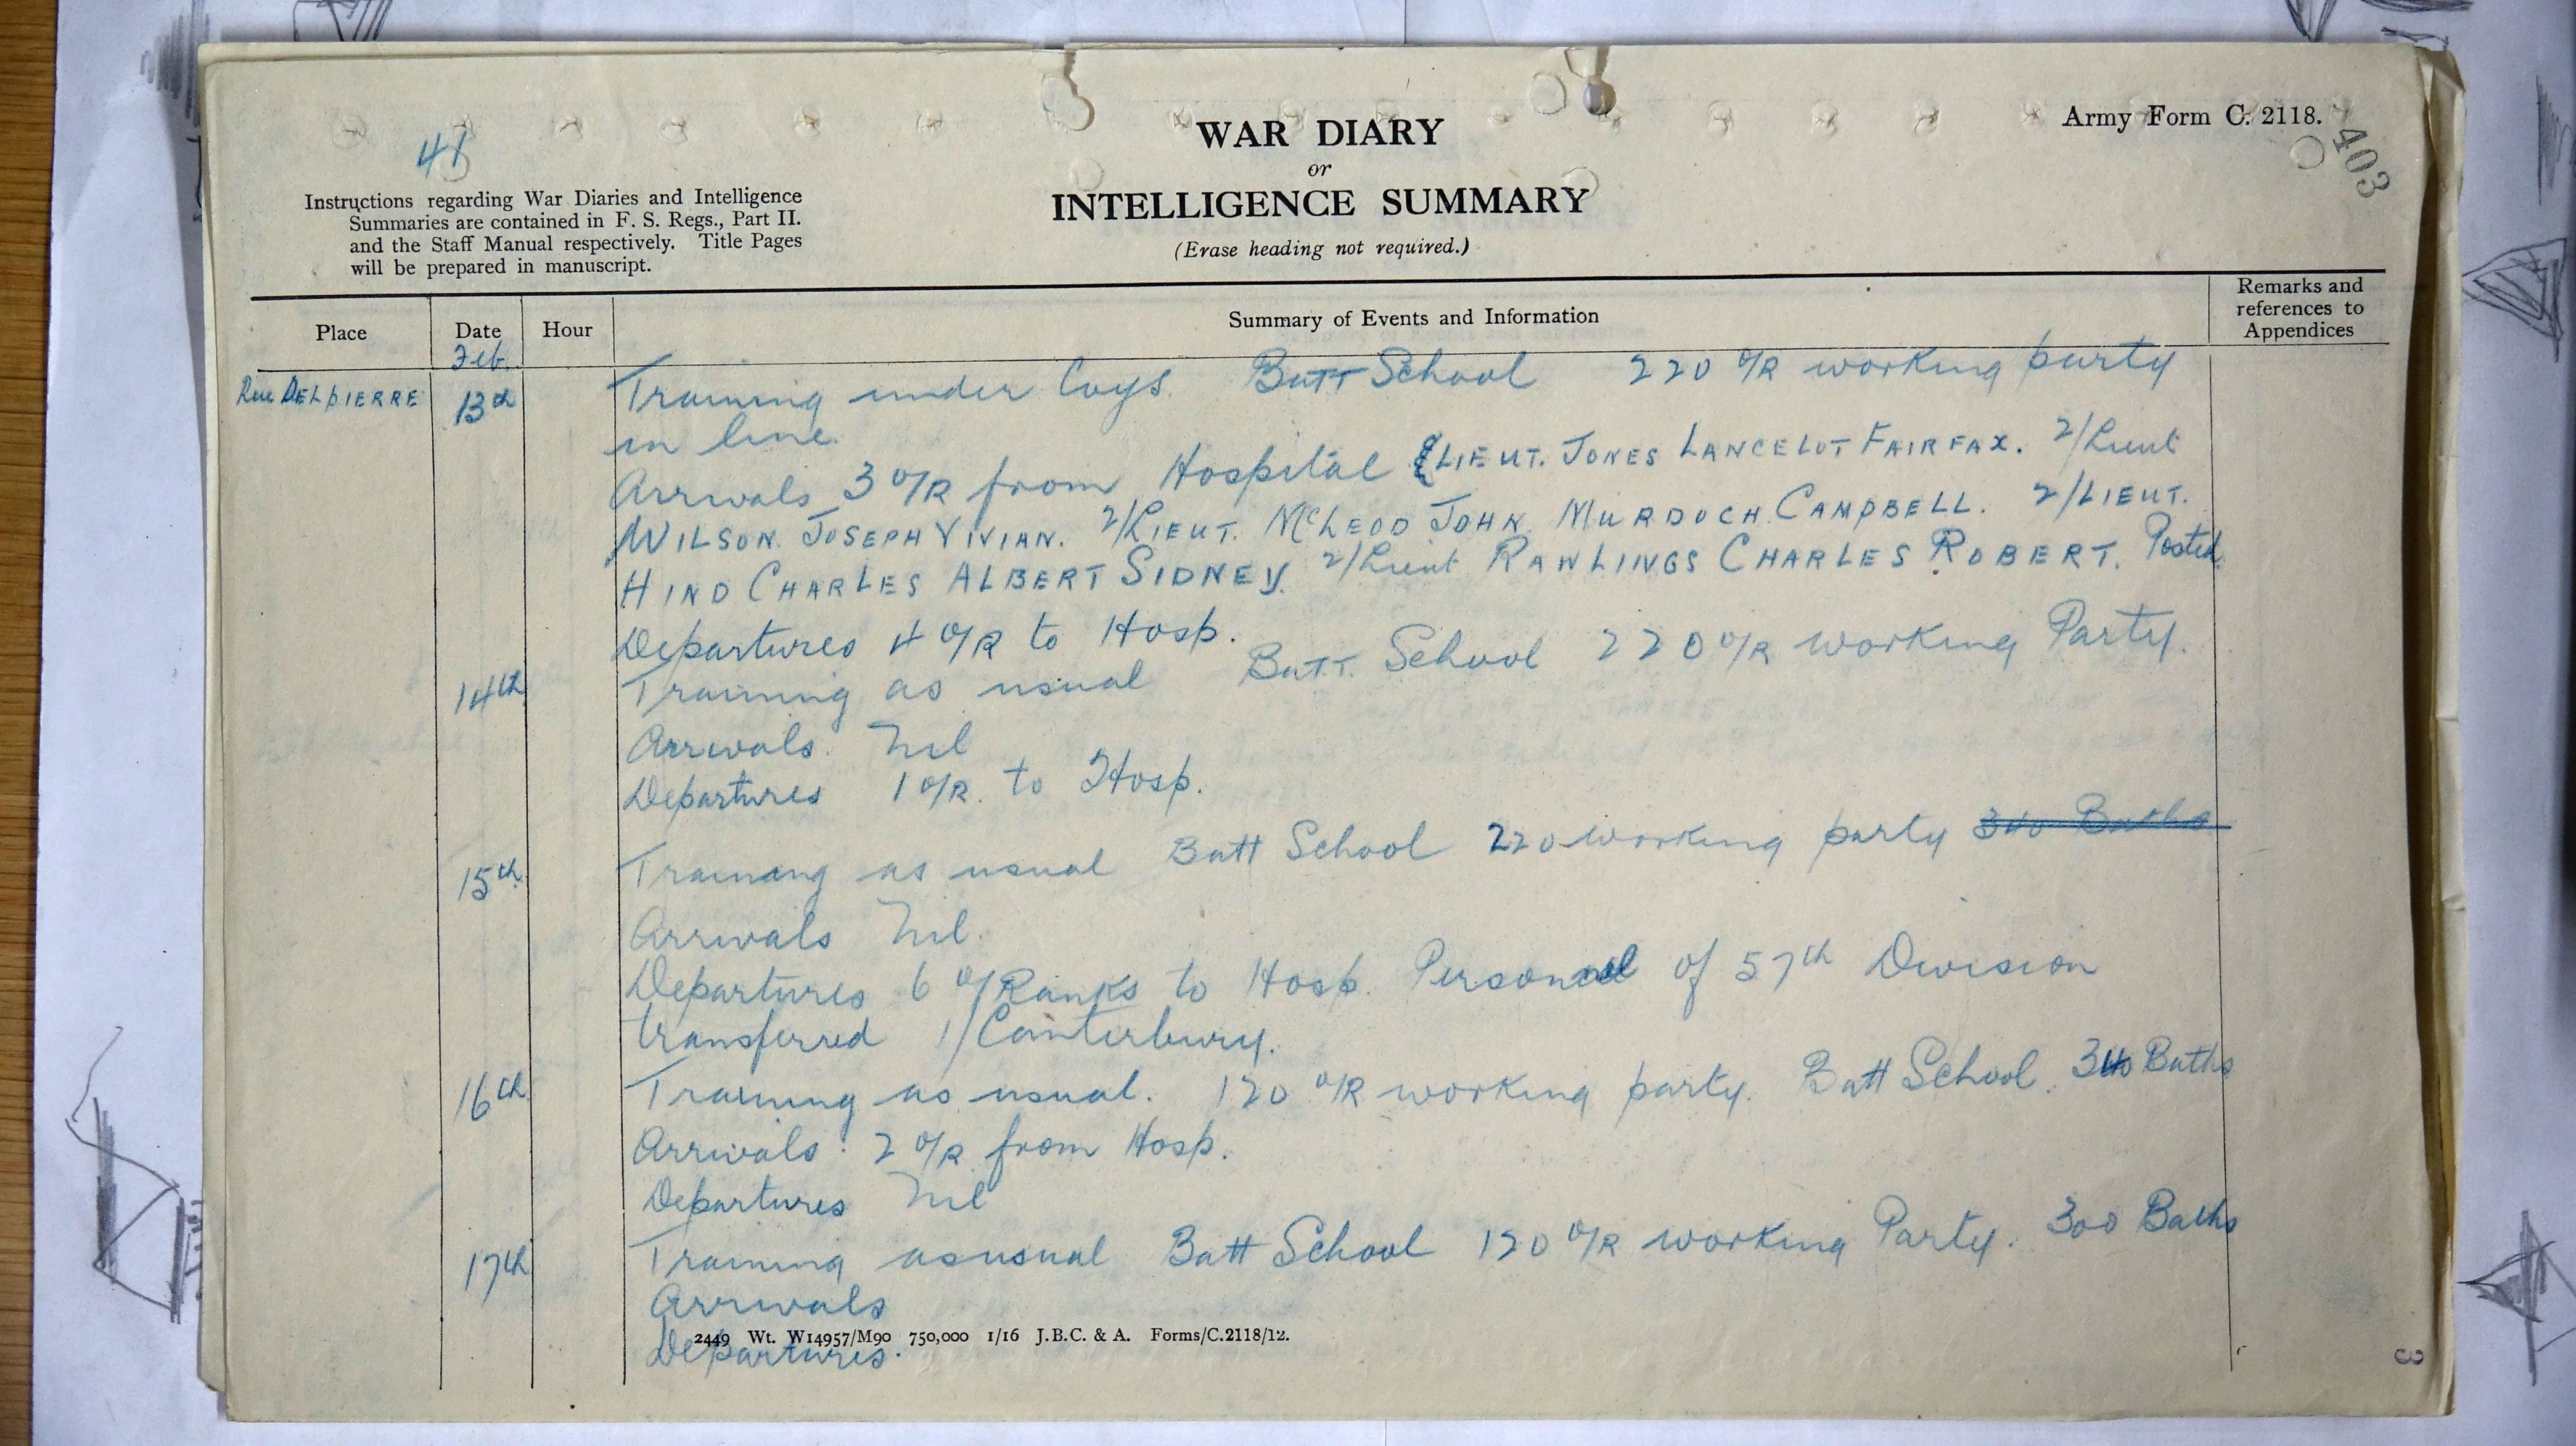 41
WAR DIARY
or
INTELLIGENCE SUMMARY
(Erase heading not required.)
Army Form C. 2118.
403
Instructions regarding War Diaries and Intelligence
Summaries are contained in F. S. Regs., Part II.
and the Staff Manual respectively. Title Pages
will be prepared in manuscript.
Place Date Hour Summary of Events and Information Remarks and references to Appendices
Feb.
Rue DELPIERRE 13th Training under Coys. Batt School 220 O/R working party
in line.
Arrivals 3 O/R from Hospital LIEUT. JONES LANCELOT FAIRFAX. 2/Lieut
WILSON. JOSEPH VIVIAN. 2/LIEUT. McLEOD JOHN MURDOCH CAMPBELL. 2/LIEUT.
HIND CHARLES ALBERT SIDNEY. 2/Lieut RAWLINGS CHARLES ROBERT. Posted
Departures 4 O/R to Hosp.
14th Training as usual Batt. School 220 O/R working Party.
Arrivals. Nil
Departures 1 O/R. to Hosp.
15th Training as usual Batt School 220 working party 340 Baths
Arrivals Nil.
Departures 6 O/Ranks to Hosp. Personnel of 57th Division
transferred 1/Canterbury.
16th Training as usual. 120 O/R working party. Batt School. 340 Baths
Arrivals. 2 O/R from Hosp.
Departures Nil
17th Training as usual Batt School 120 O/R working Party. 300 Baths
Arrivals
Departures.
2449 Wt. W14957/M90 750,000 1/16 J.B.C. & A. Forms/C.2118/12.
3